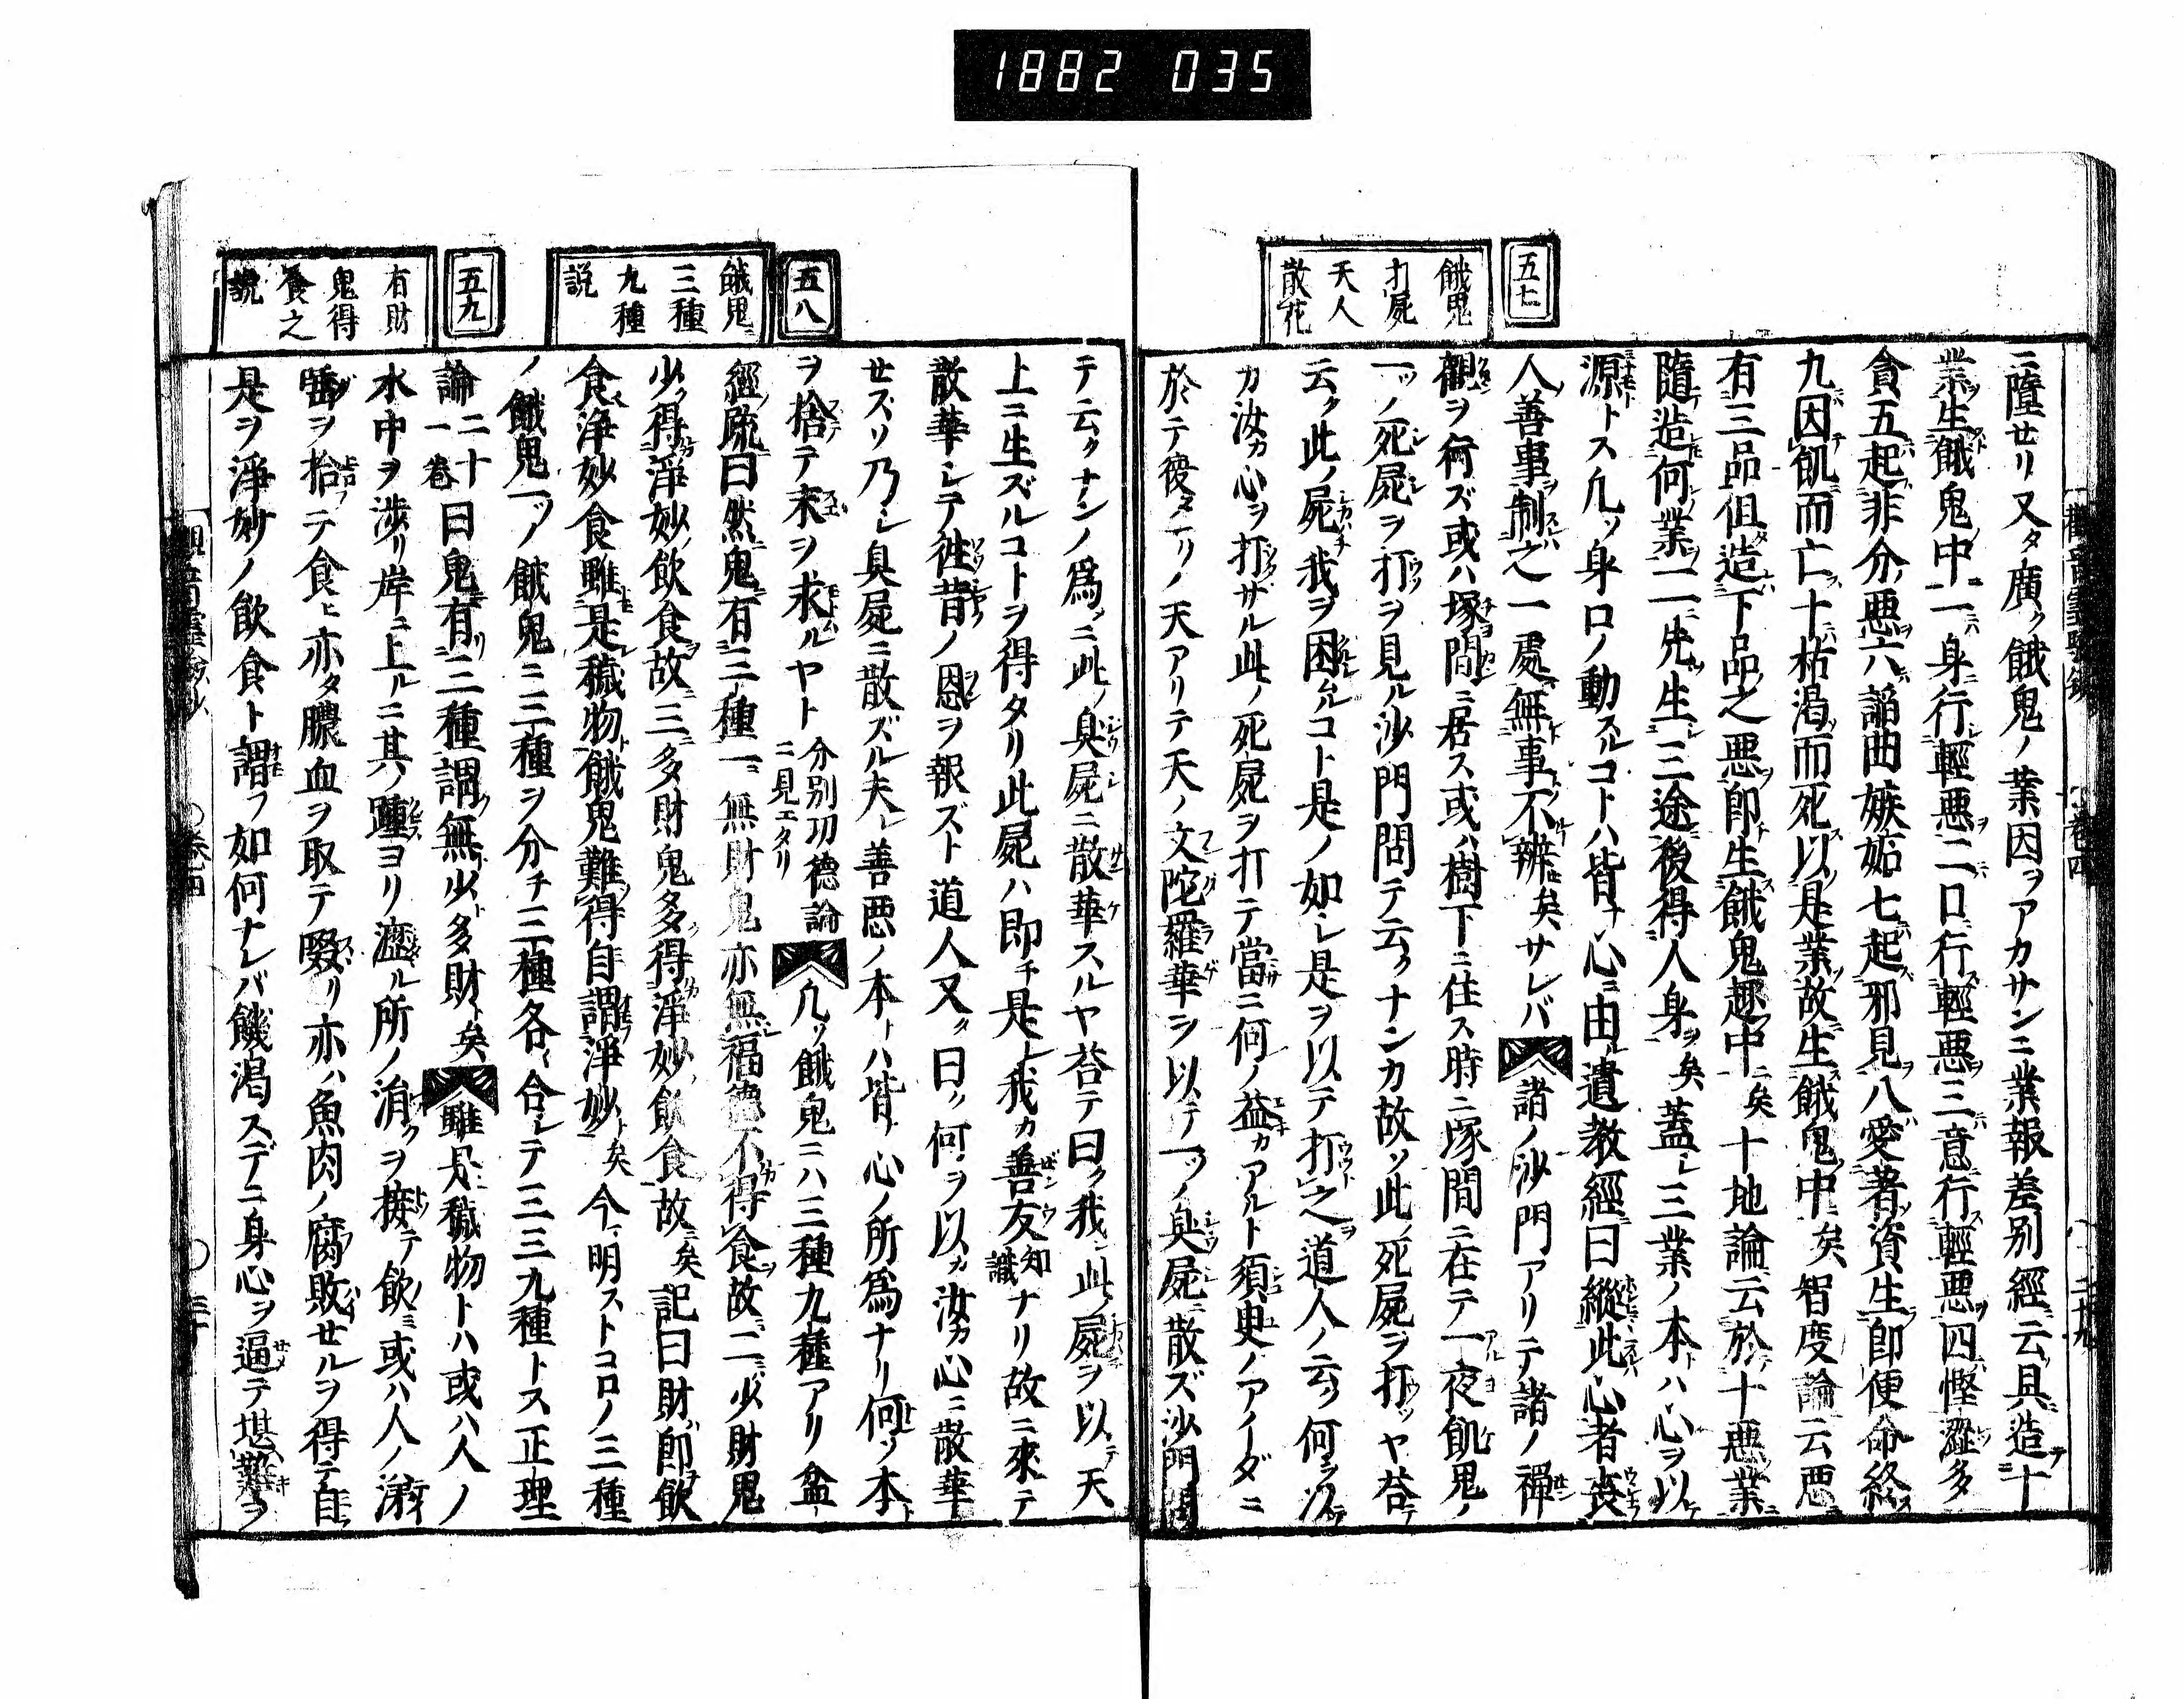 1882 035
五七
餓鬼
打屍
天人
散花
ニ墮セリ又タ廣ク餓鬼ノ業因ヲアカサンニ業報差別經云具造十
業生餓鬼中一身行輕惡二口行輕惡三意行輕惡四慳澀多
貪五起非分惡六諂曲嫉妬七起邪見八愛著資生即便命終
九因飢而亡十枯渴而死以是業故生餓鬼中矣智度論云惡
有三品但造下品之惡即生餓鬼趣中矣十地論云於十惡業
隨造何業一一先生三途後得人身矣蓋シ三業ノ本ハ心ヲ以テ
源トス凡ソ身口ノ動スルコトハ皆ナ心ニ由ル遺教經曰縱此心者喪
人善事制之一處無事不辨矣サレバ諸ノ沙門アリテ諸ノ禪
觀ヲ行ズ或ハ塚間ニ居ス或ハ樹下ニ住ス時ニ塚間ニ在テ一夜飢鬼ノ
一ツノ死屍ヲ打ヲ見ル沙門問テ云クナンカ故ソ此ノ死屍ヲ打ツヤ荅テ
云ク此ノ屍我ヲ困ムルコト是ノ如シ是ヲ以テ打之道人ノ云ク何ヲ以テ
カ汝カ心ヲ打サル此ノ死屍ヲ打テ當ニ何ノ益カアルト須臾ノアイダニ
於テ復タ一リノ天アリテ天ノ文陀羅華ヲ以テ一ツノ臭屍ニ散ズ沙門問
五八
餓鬼
三種
九種
説
五九
有財
鬼得
食之
説
テ云クナンノ爲ニ此ノ臭屍ニ散華スルヤ荅テ曰ク我レ此ノ屍ヲ以テ天
上ニ生ズルコトヲ得タリ此屍ハ即チ是レ我カ善友知識ナリ故ニ來テ
散華シテ徃昔ノ恩ヲ報ズト道人又タ曰ク何ヲ以カ汝カ心ニ散華
セズソ乃シ臭屍ニ散ズル夫レ善惡ノ本トハ皆ナ心ノ所爲ナリ何ソ本
ヲ捨テ末ヲ求ルヤト分別功德論ニ見エタリ凡ソ餓鬼ニハ三種九種アリ盆
經疏曰然鬼有三種一無財鬼亦無福德不得食故二少財鬼
少得淨妙飲食故三多財鬼多得淨妙飲食故矣記曰財即飲
食淨妙食雖是穢物餓鬼難得自謂淨妙矣今明ストコロノ三種
ノ餓鬼一ツノ餓鬼ニ三種ヲ分チ三種各〻合シテ三三九種トス正理
論二十一卷曰鬼有三種謂無少多財矣雖是穢物トハ或ハ人ノ
水中ヲ渉リ岸ニ上ルニ其ノ踵ヨリ瀝ル所ノ渧ヲ接テ飲ミ或ハ人ノ涕
唾ヲ拾テ食ヒ亦タ膿血ヲ取テ啜リ亦ハ魚肉ノ腐敗セルヲ得テ自
是ヲ淨妙ノ飲食ト謂フ如何ナレバ饑渴スデニ身心ヲ逼テ堪難ヲ